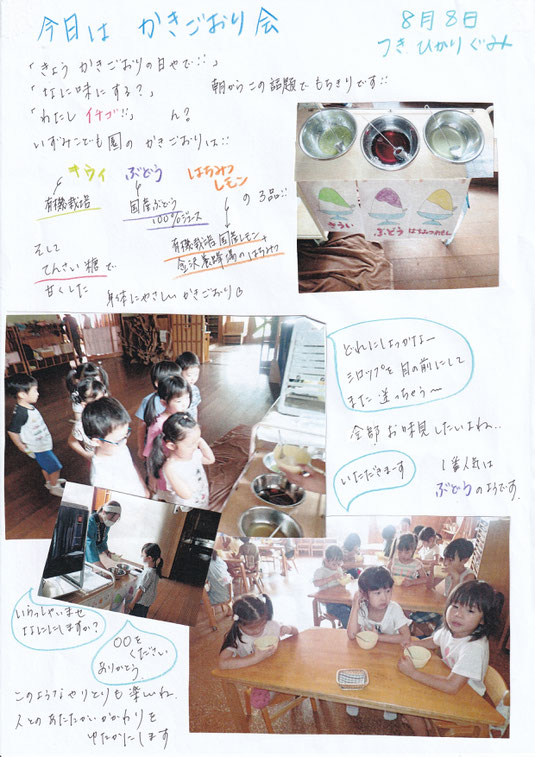 今日は かきごおり会
8月8日
つき.ひかりぐみ
「きょう かきごおりの日やで!!」
「なに味にする?」
朝からこの話題でもちきりです!!
「わたし イチゴ!!」 ん?
いずみこども園の かきごおりは!!
キウイ ぶどう はちみつ
レモン
の3品!!
有機栽培
国産ぶどう
100%ジュース
有機栽培国産レモン+
金沢養蜂場のはちみつ
そして
てんさい糖で
甘くした
身体にやさしいかきごおり
きうい ぶどう はちみつれもん
どれにしよっかなー
シロップを目の前にして
また迷っちゃう〜
全部お味見したいよね..
いただきまーす
1番人気は
ぶどうのようです.
いらっしゃいませ
なににしますか?
〇〇を
ください
ありがとう.
このようなやりとりも楽しいね.
人とのあたたかいかかわりを
ゆたかにします